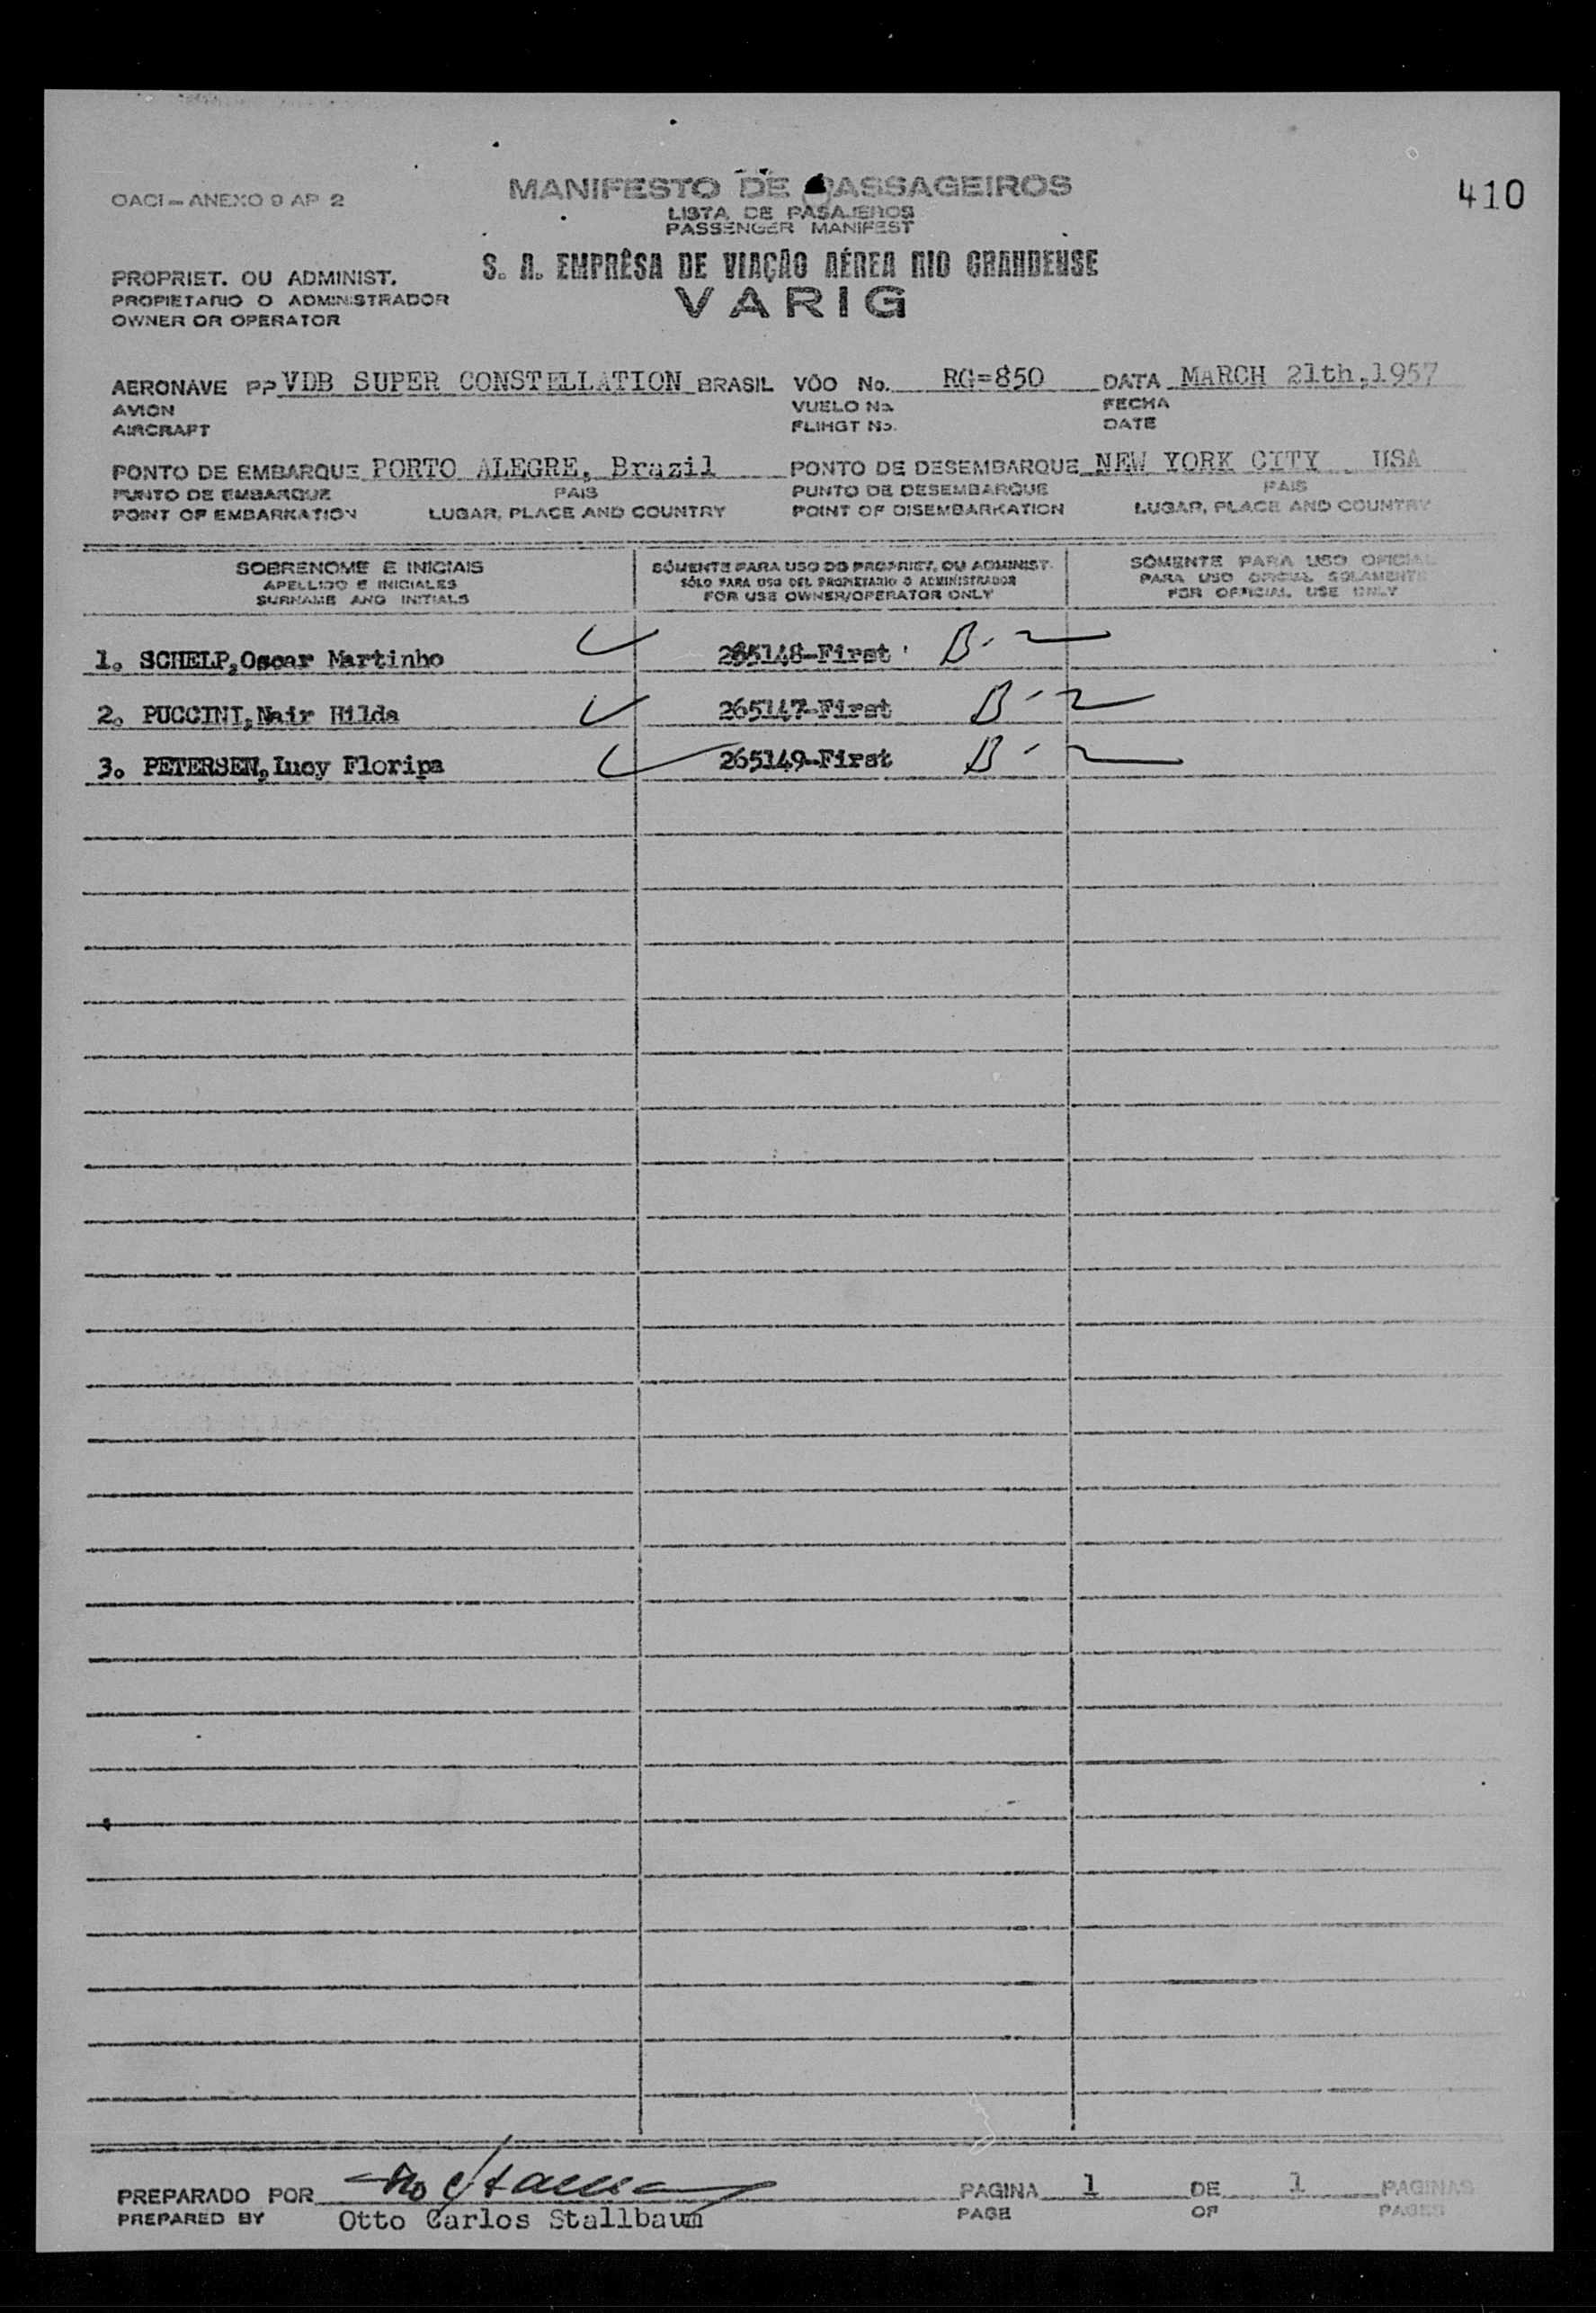 410
OACI — ANEXO 9 AP 2
MANIFESTO DE PASSAGEIROS
LISTA DE PASAJEROS
PASSENGER MANIFEST
S. A. EMPRÊSA DE VIAÇÃO AÉREA RIO GRANDENSE
VARIG
PROPRIET. OU ADMINIST.
PROPIETARIO O ADMINISTRADOR
OWNER OR OPERATOR
AERONAVE PP VDB SUPER CONSTELLATION BRASIL VÔO No. RG=850 DATA MARCH 21th,1957
AVION VUELO No. FECHA
AIRCRAFT FLIHGT No. DATE
PONTO DE EMBARQUE PORTO ALEGRE, Brazil PONTO DE DESEMBARQUE NEW YORK CITY USA
PUNTO DE EMBARQUE PAIS PUNTO DE DESEMBARQUE PAIS
POINT OF EMBARKATION LUGAR, PLACE AND COUNTRY POINT OF DISEMBARKATION LUGAR, PLACE AND COUNTRY
SOBRENOME E INICIAIS SÒMENTE PARA USO DO PROPRIET. OU ADMINIST. SÒMENTE PARA USO OFICIAL
APELLIDO E INICIALES SÓLO PARA USO DEL PROPIETARIO O ADMINISTRADOR PARA USO OFICIAL SOLAMENTE
SURNAME AND INITIALS FOR USE OWNER/OPERATOR ONLY FOR OFFICIAL USE ONLY
1. SCHELP,Oscar Martinho 265148-First B-2
2. PUCCINI,Nair Hilda 265147-First B-2
3. PETERSEN,Lucy Floripa 265149-First B-2
PREPARADO POR PAGINA 1 DE 1 PAGINAS
PREPARED BY Otto Carlos Stallbaum PAGE OF PAGES